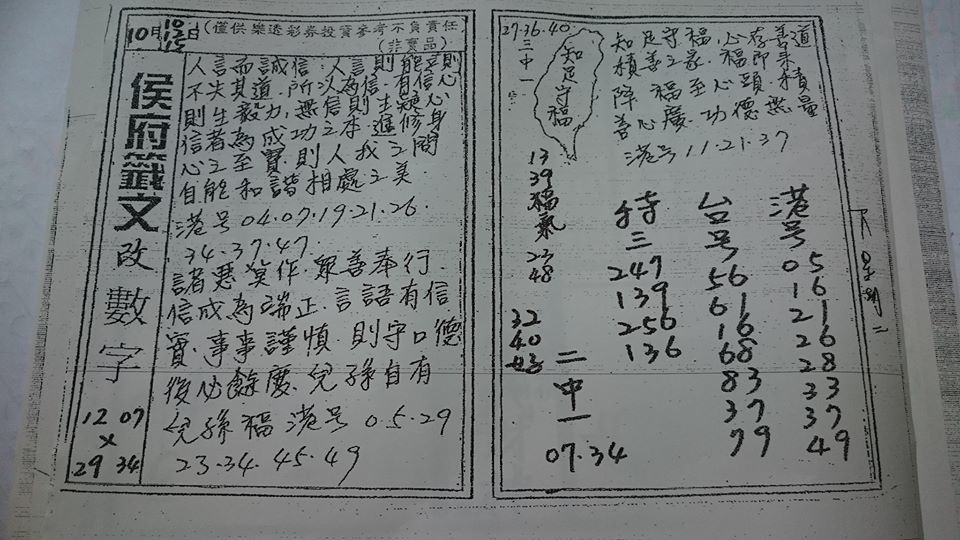 10月 10 12 15日
(僅供樂透彩券投資參考不負責任)
(非賣品)
侯府籤文改數字
12 07
×
29 34
人言而誠信.人言則能足則
不失其道.所以為信.有信心
則生毅力,無信則生疑心
信者為成功之本.進修身
心之至寶.則人我之間
自能和諧相處之美.
港号04.07.19.21.26.
34.37.47.
諸惡莫作.眾善奉行.
信成為端正.言語有信
實.事事謹慎.則守口德
後必餘慶.兒孫自有
兒孫福港号05.29
23.34.45.49
27.36.40
三中一
知足守福
知足守福,心存善道
積善之家.福即來
降.福至心頭.積
善心慶.功德無量
港号11.21.37
13
39
福氣
23
48
32
40
特三
247
139
256
136
台号
56
61
16
68
83
37
79
港号
05
16
21
26
28
33
37
49
二中一
07.34